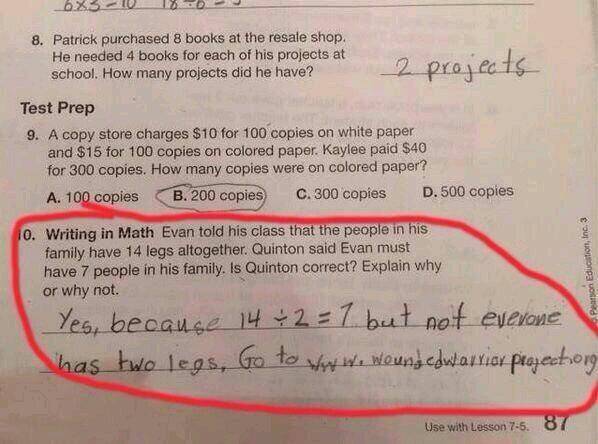 6x3=10 18÷6=3
8. Patrick purchased 8 books at the resale shop.
He needed 4 books for each of his projects at
school. How many projects did he have?
2 projects
Test Prep
9. A copy store charges $10 for 100 copies on white paper
and $15 for 100 copies on colored paper. Kaylee paid $40
for 300 copies. How many copies were on colored paper?
A. 100 copies B. 200 copies C. 300 copies D. 500 copies
10. Writing in Math Evan told his class that the people in his
family have 14 legs altogether. Quinton said Evan must
have 7 people in his family. Is Quinton correct? Explain why
or why not.
Yes, because 14 ÷ 2 = 7 but not everone
has two legs, Go to www.woundedwarriorproject.org
Pearson Education, Inc. 3
Use with Lesson 7-5. 87